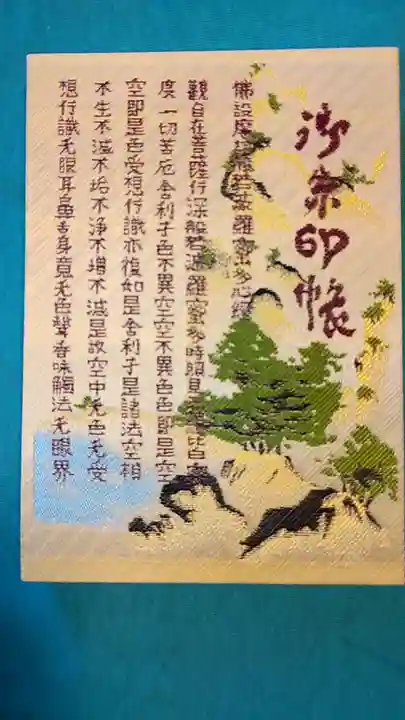 御朱印帳
佛説摩訶般若波羅蜜多心経
観自在菩薩行深般若波羅蜜多時照見五蘊皆空
度一切苦厄舎利子色不異空空不異色色即是空
空即是色受想行識亦復如是舎利子是諸法空相
不生不滅不垢不浄不増不減是故空中无色无受
想行識无眼耳鼻舌身意无色聲香味觸法无眼界